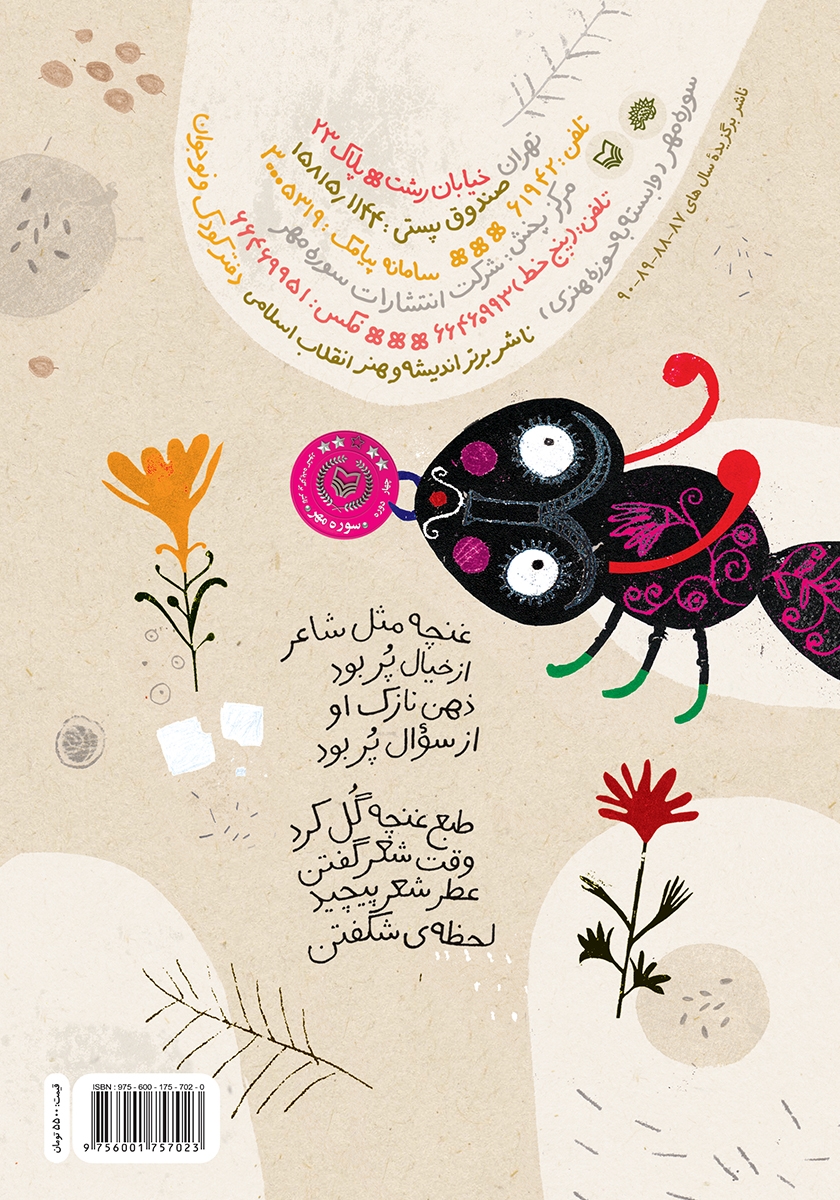 ناشر برگزیدهٔ سال های ۸۷-۸۸-۸۹-۹۰
سوره مهر (وابسته به حوزه هنری)
ناشر برتر اندیشه و هنر انقلاب اسلامی
دفتر کودک و نوجوان
تهران خیابان رشت پلاک ۲۳
صندوق پستی: ۱۵۸۱۵/۱۱۴۴
تلفن: ۶۱۹۴۲ سامانه پیامک: ۳۰۰۰۵۳۱۹
مرکز پخش: شرکت انتشارات سوره مهر
تلفن: (پنج خط) ۶۶۴۶۰۹۹۳ فکس: ۶۶۴۶۹۹۵۱
چهار دوره
سوره مهر
غنچه مثل شاعر
از خیال پُر بود
ذهن نازک او
از سؤال پُر بود
طبع غنچه گُل کرد
وقت شعر گفتن
عطر شعر پیچید
لحظه‌ی شکفتن
ISBN : 975 - 600 - 175 - 702 - 0
9 756001 757023
قیمت: ۵۵۰۰ تومان